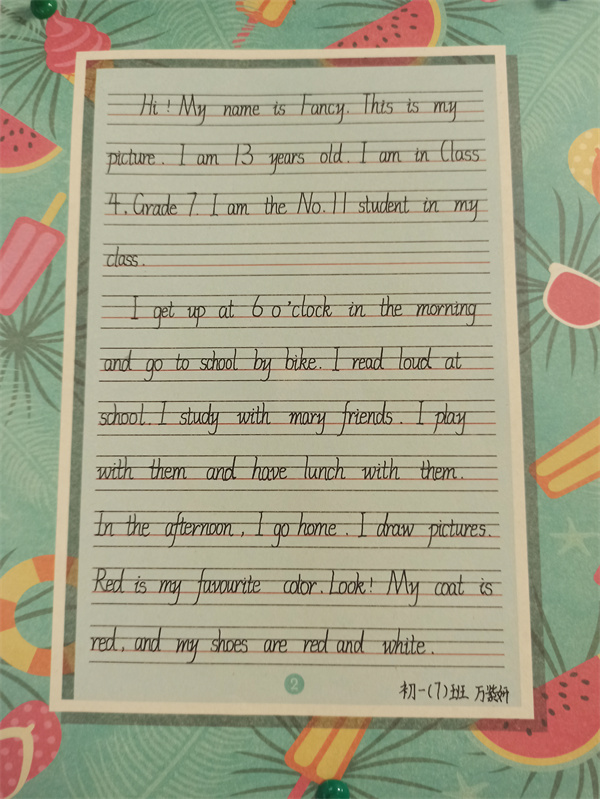 Hi! My name is Fancy. This is my
picture. I am 13 years old. I am in Class
4, Grade 7. I am the No. 11 student in my
class.
I get up at 6 o'clock in the morning
and go to school by bike. I read loud at
school. I study with many friends. I play
with them and have lunch with them.
In the afternoon, I go home. I draw pictures.
Red is my favourite color. Look! My coat is
red, and my shoes are red and white.
2
初一(7)班